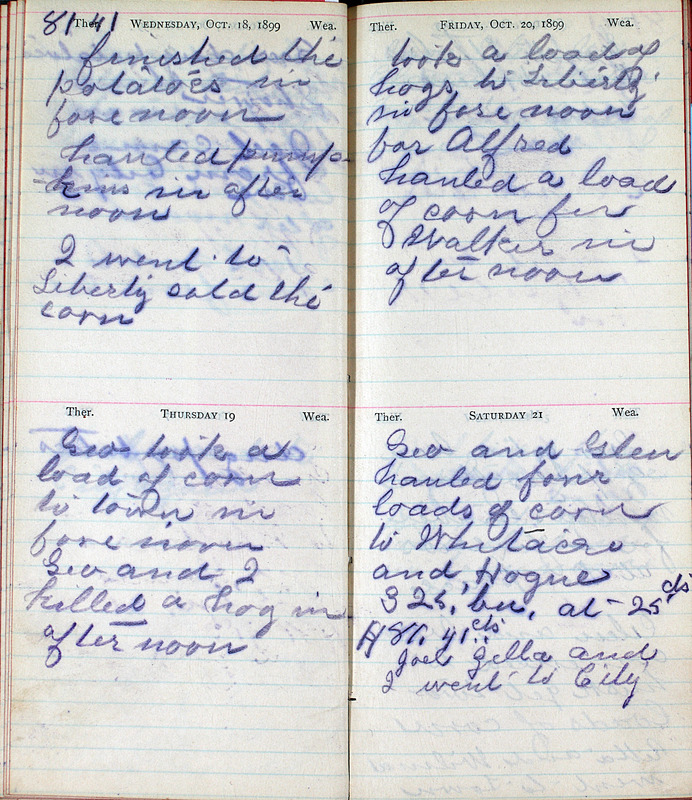 81 41
Ther. WEDNESDAY, OCT. 18, 1899 Wea.
finished the
potatoes in
fore noon
hauled pump-
-kins in after
noon
I went to
Liberty sold the
corn
Ther. THURSDAY 19 Wea.
Geo took a
load of corn
to town in
fore noon
Geo and I
killed a hog in
after noon
Ther. FRIDAY, OCT. 20, 1899 Wea.
took a load of
hogs to Liberty
in fore noon
for Alfred
hauled a load
of corn for
Walker in
after noon
Ther. SATURDAY 21 Wea.
Geo and Glen
hauled four
loads of corn
to Whitacre
and Hogue
325, bu, at 25 cts
$81, 41 cts
Joel Zella and
I went to City